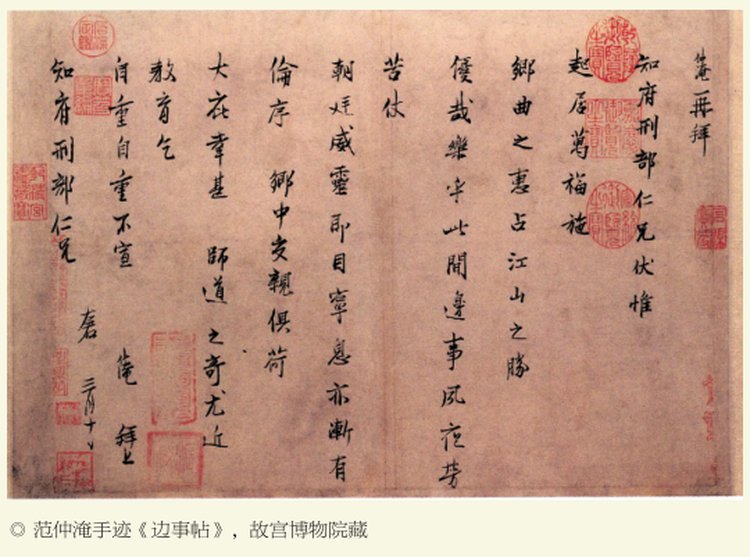 仲淹再拜
知府刑部仁兄伏惟
起居萬福施
鄉曲之惠占江山之勝
優哉樂乎此間邊事夙夜勞
苦仗
朝廷威靈即目寧息亦漸有
倫序 鄉中交親俱荷
大庇幸甚 師道之奇尤近
教育乞
自重自重不宣 仲淹 拜上
知府刑部仁兄 左右 三月十日
◎ 范仲淹手迹《边事帖》,故宫博物院藏